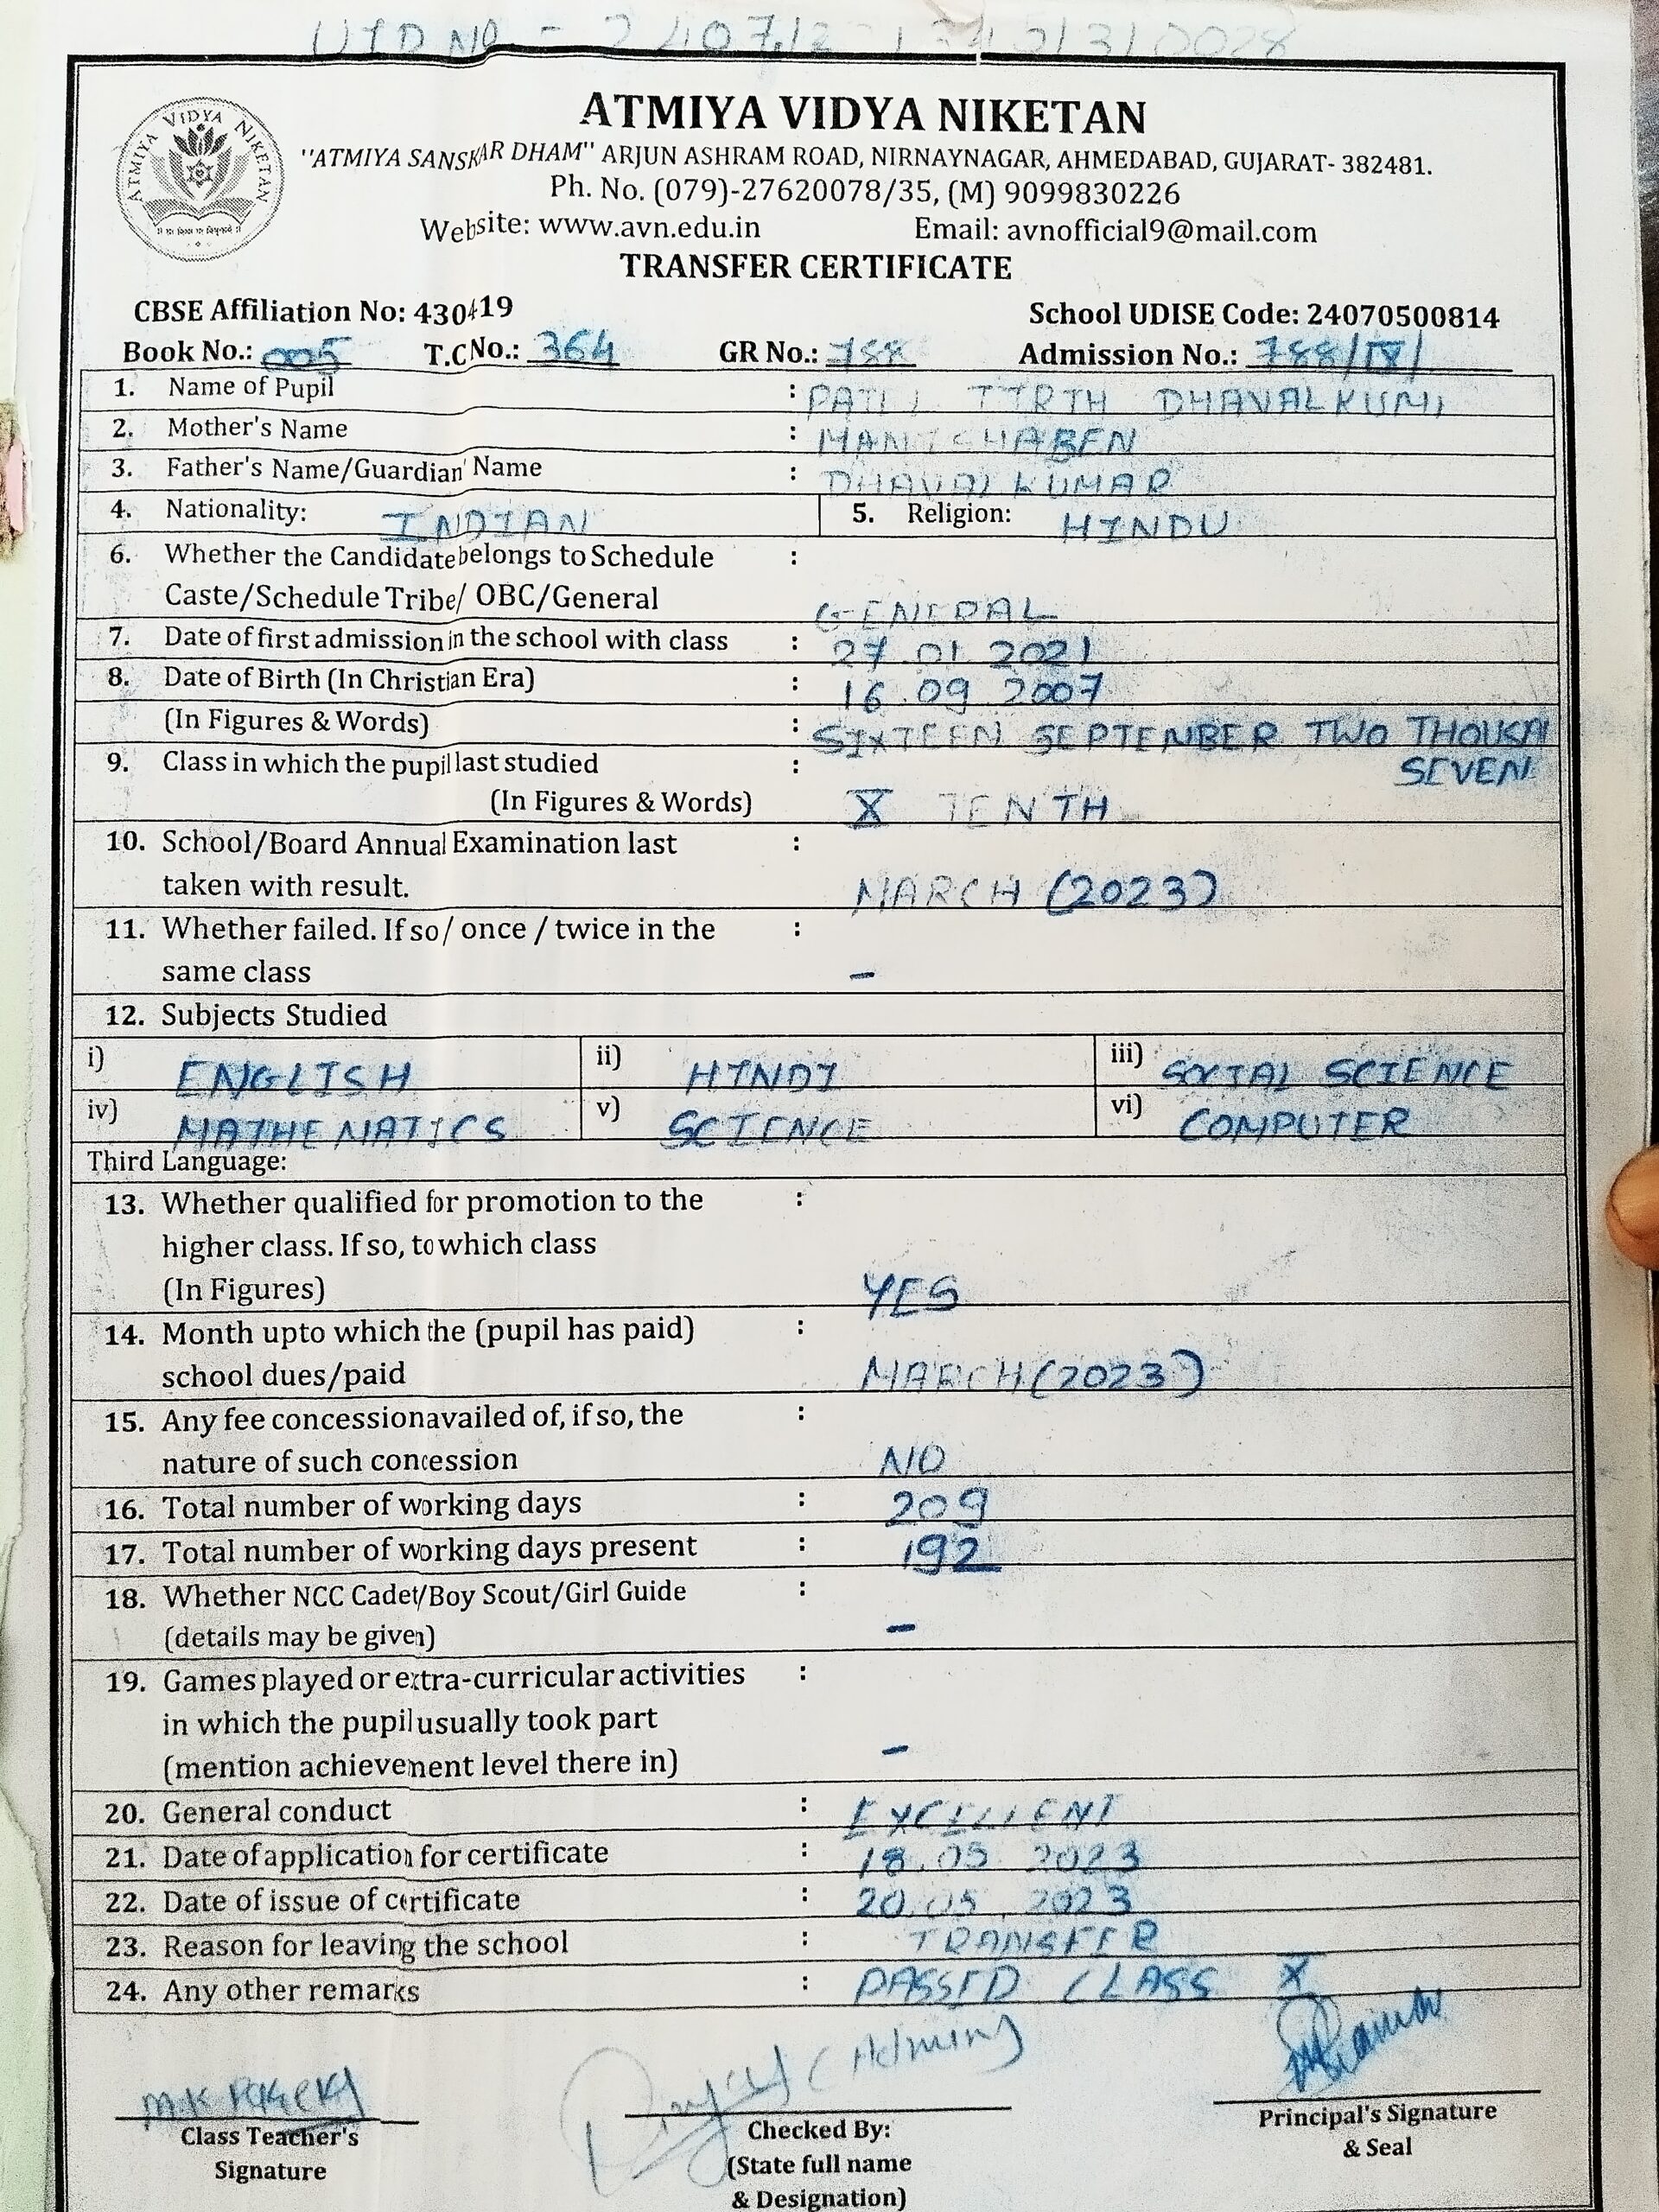 UID NO -
ATMIYA VIDYA NIKETAN
ATMIYA VIDYA NIKETAN
"ATMIYA SANSKAR DHAM" ARJUN ASHRAM ROAD, NIRNAYNAGAR, AHMEDABAD, GUJARAT- 382481.
Ph. No. (079)-27620078/35, (M) 9099830226
Website: www.avn.edu.in Email: avnofficial9@mail.com
TRANSFER CERTIFICATE
CBSE Affiliation No: 430419 School UDISE Code: 24070500814
Book No.: 005 T.C No.: 364 GR No.: 788 Admission No.: 788/IX/
1. Name of Pupil : TIRTH
2. Mother's Name :
3. Father's Name/Guardian' Name : DHAVALKUMAR
4. Nationality: INDIAN 5. Religion: HINDU
6. Whether the Candidate belongs to Schedule :
Caste/Schedule Tribe/ OBC/General GENERAL
7. Date of first admission in the school with class : 27.01.2021
8. Date of Birth (In Christian Era) : 16.09.2007
(In Figures & Words) : SIXTEEN SEPTEMBER TWO THOUSAN
9. Class in which the pupil last studied : SEVEN
(In Figures & Words) X TENTH
10. School/Board Annual Examination last :
taken with result. MARCH (2023)
11. Whether failed. If so/ once / twice in the :
same class -
12. Subjects Studied
i) ENGLISH ii) HINDI iii) SOCIAL SCIENCE
iv) MATHEMATICS v) SCIENCE vi) COMPUTER
Third Language:
13. Whether qualified for promotion to the :
higher class. If so, to which class
(In Figures) YES
14. Month upto which the (pupil has paid) :
school dues/paid MARCH (2023)
15. Any fee concession availed of, if so, the :
nature of such concession NO
16. Total number of working days : 209
17. Total number of working days present : 192
18. Whether NCC Cadet/Boy Scout/Girl Guide :
(details may be given) -
19. Games played or extra-curricular activities :
in which the pupil usually took part
(mention achievement level there in) -
20. General conduct : EXCELLENT
21. Date of application for certificate : 18.05.2023
22. Date of issue of certificate : 20.05.2023
23. Reason for leaving the school : TRANSFER
24. Any other remarks : PASSED CLASS X
(Admin)
Class Teacher's Checked By: Principal's Signature
Signature (State full name & Seal
& Designation)